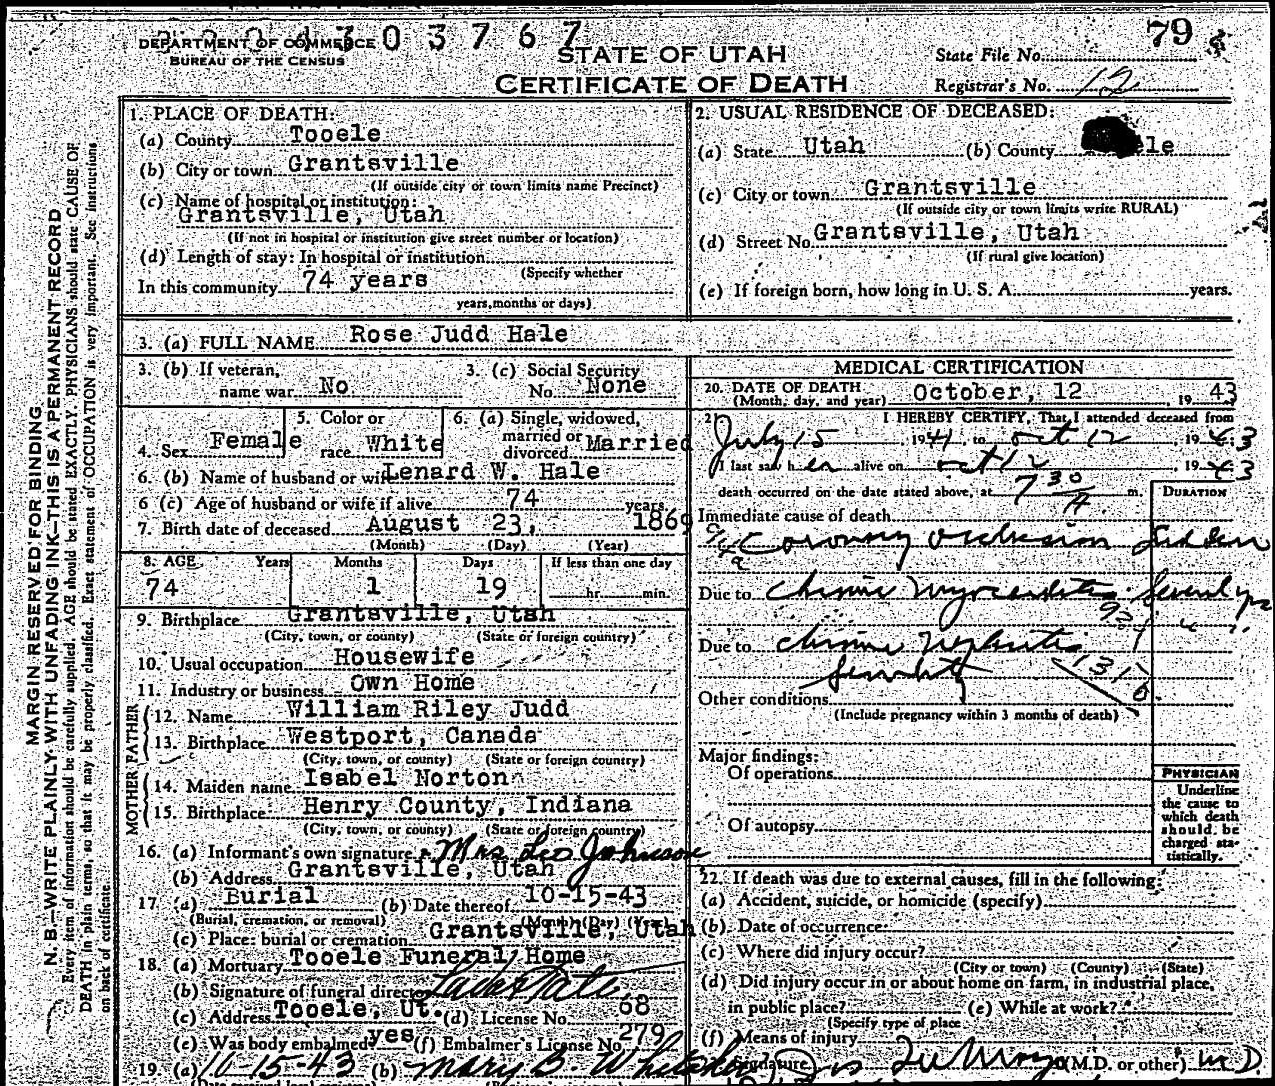 DEPARTMENT OF COMMERCE 303767 79
BUREAU OF THE CENSUS
STATE OF UTAH
CERTIFICATE OF DEATH
State File No.
Registrar's No. 12
MARGIN RESERVED FOR BINDING
N. B.—WRITE PLAINLY, WITH UNFADING INK—THIS IS A PERMANENT RECORD
Every item of information should be carefully supplied. AGE should be stated EXACTLY. PHYSICIANS should state CAUSE OF
DEATH in plain terms, so that it may be properly classified. Exact statement of OCCUPATION is very important. See instructions
on back of certificate.
1. PLACE OF DEATH:
(a) County Tooele
(b) City or town Grantsville
(If outside city or town limits name Precinct)
(c) Name of hospital or institution:
Grantsville, Utah
(If not in hospital or institution give street number or location)
(d) Length of stay: In hospital or institution
(Specify whether
In this community 74 years
years, months or days)
2. USUAL RESIDENCE OF DECEASED:
(a) State Utah (b) County ele
(c) City or town Grantsville
(If outside city or town limits write RURAL)
(d) Street No. Grantsville, Utah
(If rural give location)
(e) If foreign born, how long in U. S. A. years.
3. (a) FULL NAME Rose Judd Hale
3. (b) If veteran, name war No
3. (c) Social Security No. None
4. Sex Female
5. Color or race White
6. (a) Single, widowed, married or divorced Married
6. (b) Name of husband or wife Lenard W. Hale
6 (c) Age of husband or wife if alive 74 years
7. Birth date of deceased August 23, 1869
(Month) (Day) (Year)
8. AGE Years Months Days If less than one day
74 1 19 hr. min.
9. Birthplace Grantsville, Utah
(City, town, or county) (State or foreign country)
10. Usual occupation Housewife
11. Industry or business Own Home
FATHER
12. Name William Riley Judd
13. Birthplace Westport, Canada
(City, town, or county) (State or foreign country)
MOTHER
14. Maiden name Isabel Norton
15. Birthplace Henry County, Indiana
(City, town, or county) (State or foreign country)
16. (a) Informant's own signature Mrs Leo Johnson
(b) Address Grantsville, Utah
17 (a) Burial (b) Date thereof 10-15-43
(Burial, cremation, or removal) (Month) (Day) (Year)
(c) Place: burial or cremation Grantsville, Utah
18. (a) Mortuary Tooele Funeral Home
(b) Signature of funeral director
(c) Address Tooele, Ut. (d) License No. 68
(e) Was body embalmed yes (f) Embalmer's License No. 279
19. (a) 10-15-43 (b) Mary B.
MEDICAL CERTIFICATION
20. DATE OF DEATH
(Month, day, and year) October, 12 19 43
21 I HEREBY CERTIFY, That I attended deceased from
July 15, 1941, to Oct 12, 1943
I last saw her alive on Oct 12, 1943
death occurred on the date stated above, at 7 30 A m.
DURATION
Immediate cause of death
Coronary occlusion Sudden
Due to Chronic Myocarditis Several yrs
Due to Chronic Nephritis
Senility 131b
Other conditions
(Include pregnancy within 3 months of death)
Major findings:
Of operations
Of autopsy
PHYSICIAN
Underline
the cause to
which death
should be
charged sta-
tistically.
22. If death was due to external causes, fill in the following:
(a) Accident, suicide, or homicide (specify)
(b) Date of occurrence
(c) Where did injury occur?
(City or town) (County) (State)
(d) Did injury occur in or about home on farm, in industrial place,
in public place? (e) While at work?
(Specify type of place
(f) Means of injury
Signature (M.D. or other) M D.